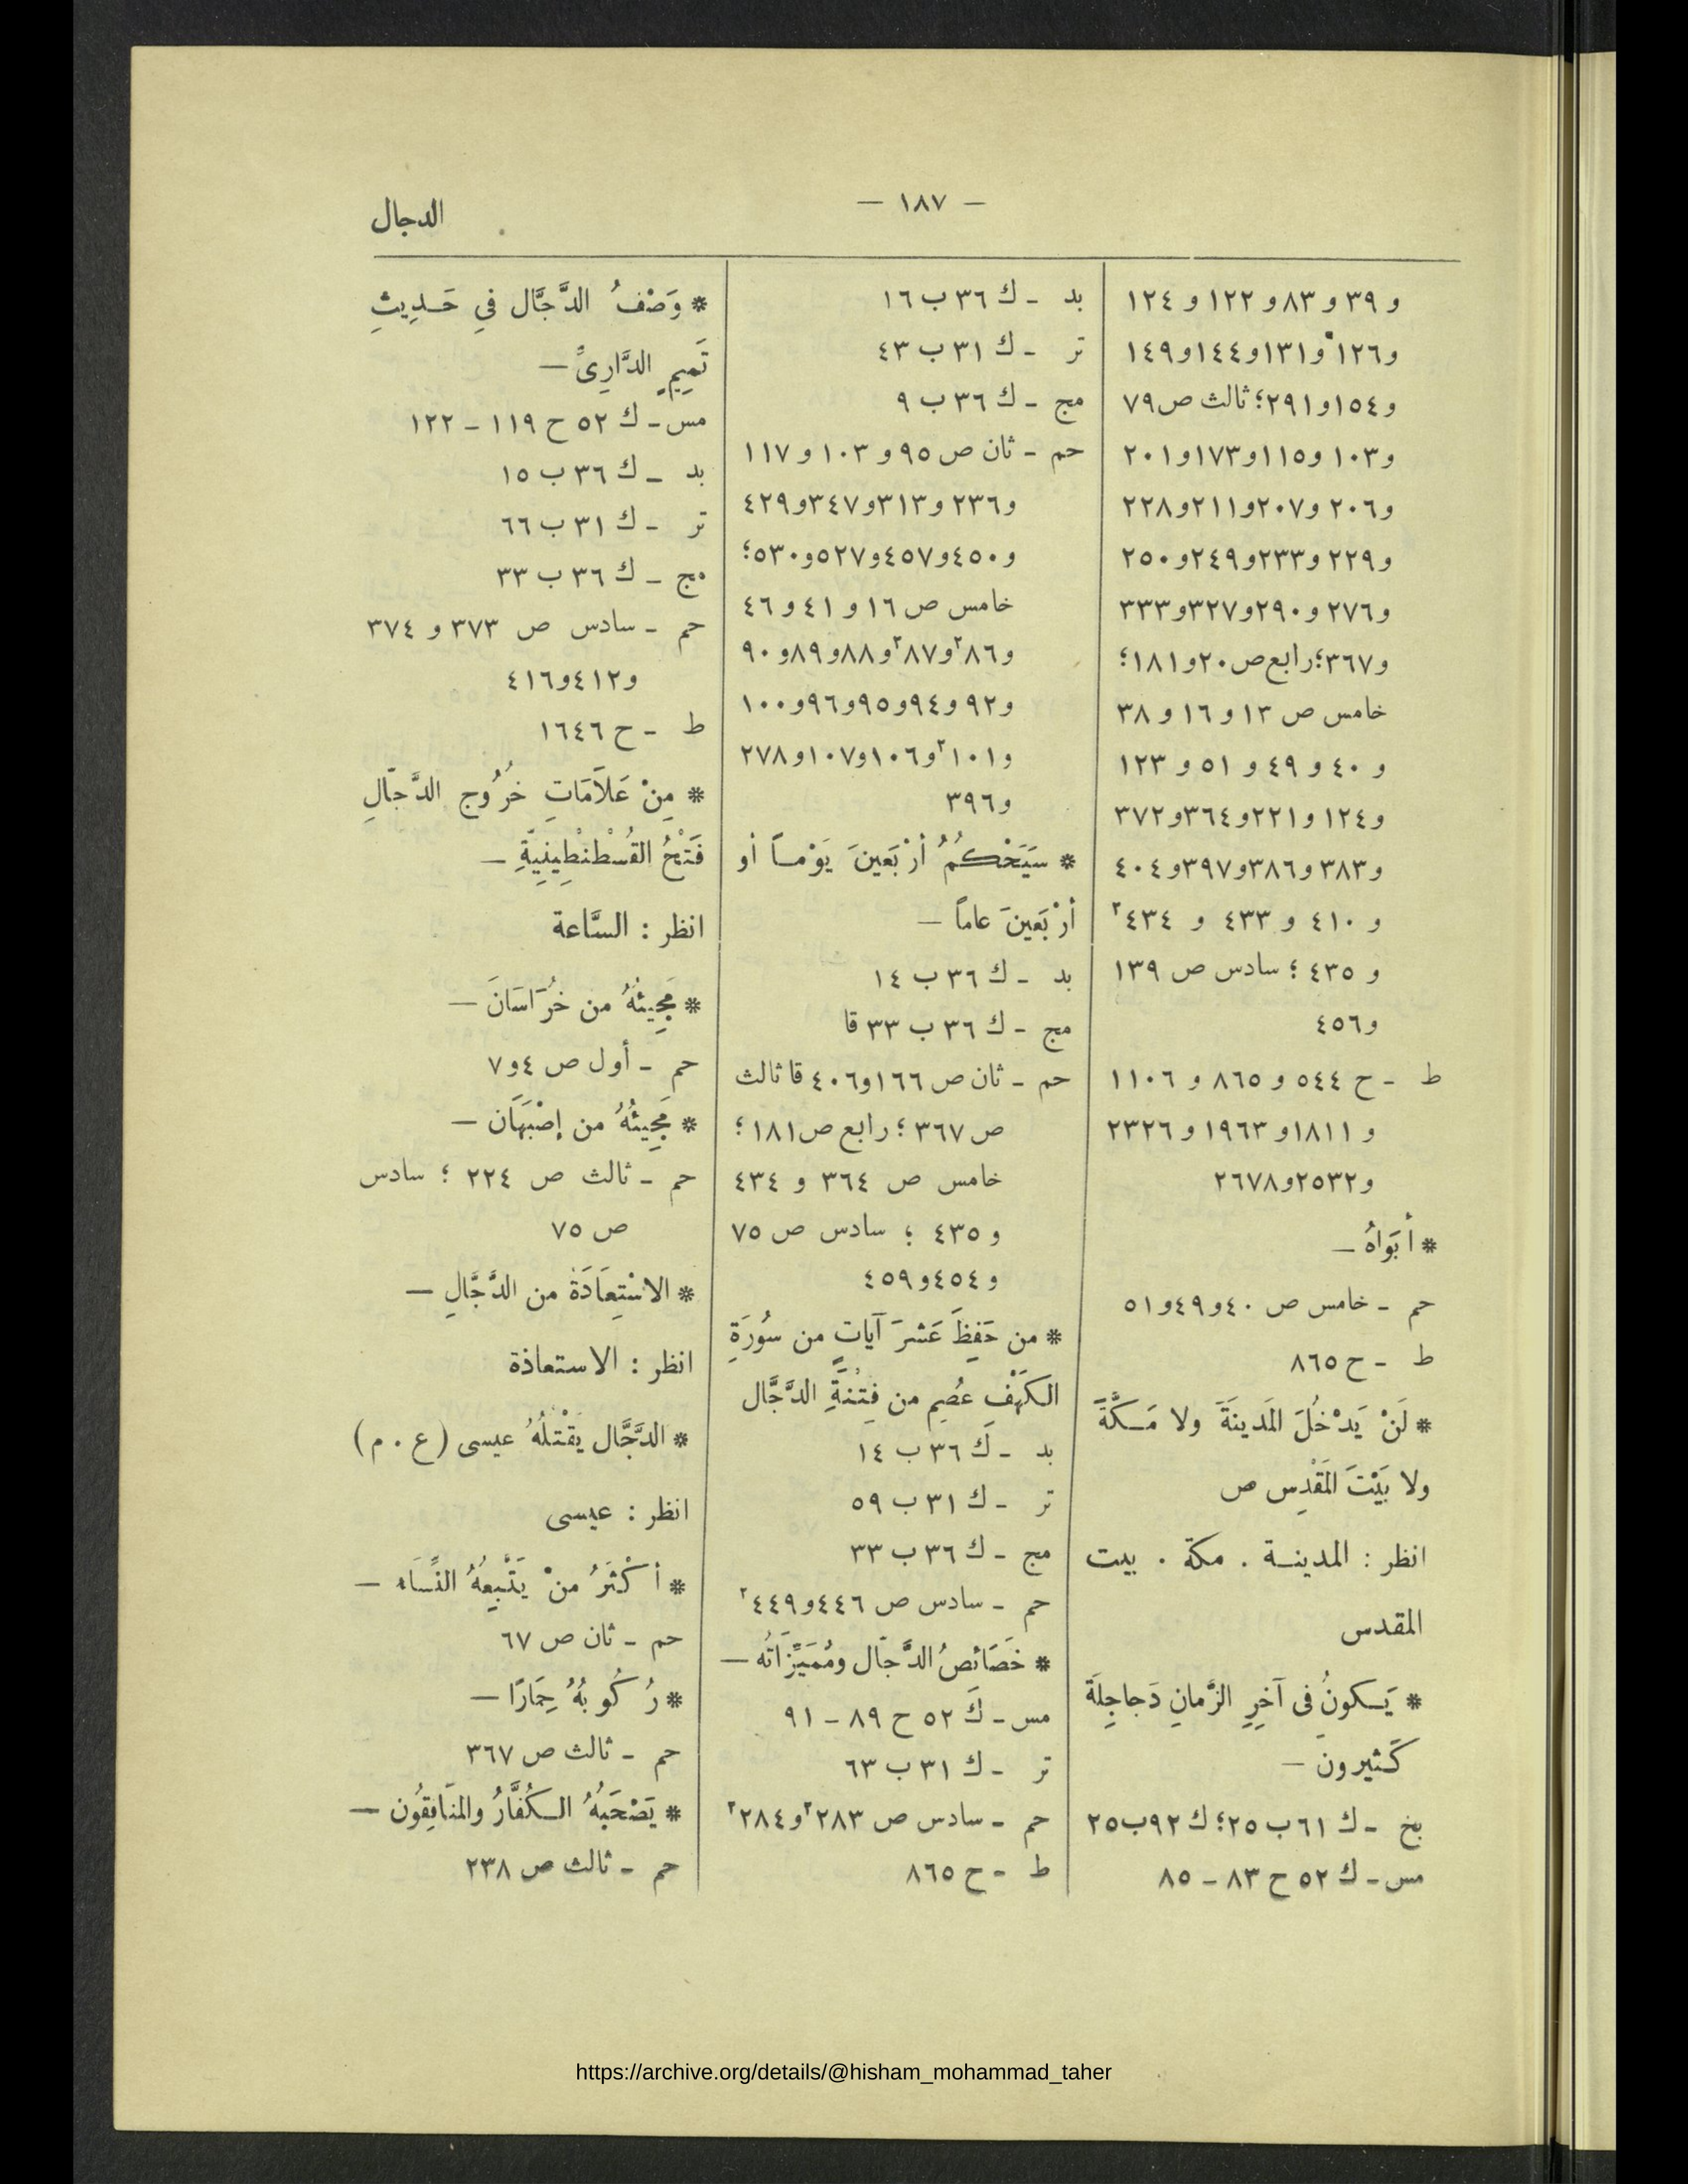 — ١٨٧ —
الدجال
و ٣٩ و ٨٣ و ١٢٢ و ١٢٤
و١٢٦ و١٣١و١٤٤و١٤٩
و١٥٤و٢٩١؛ ثالث ص٧٩
و١٠٣ و١١٥و١٧٣و٢٠١
و٢٠٦ و٢٠٧و٢١١و٢٢٨
و٢٢٩ و٢٣٣و٢٤٩و٢٥٠
و٢٧٦ و٢٩٠و٣٢٧و٣٣٣
و٣٦٧؛رابع ص٢٠و١٨١؛
خامس ص ١٣ و ١٦ و ٣٨
و ٤٠ و ٤٩ و ٥١ و ١٢٣
و١٢٤ و٢٢١و٣٦٤و٣٧٢
و٣٨٣ و٣٨٦و٣٩٧و٤٠٤
و ٤١٠ و ٤٣٣ و ٤٣٤²
و ٤٣٥ ؛ سادس ص ١٣٩
و٤٥٦
ط - ح ٥٤٤ و ٨٦٥ و ١١٠٦
و ١٨١١و ١٩٦٣ و ٢٣٢٦
و٢٥٣٢و٢٦٧٨
* أبَوَاهُ —
حم - خامس ص ٤٠و٤٩و٥١
ط - ح ٨٦٥
* لَنْ يَدْخُلَ المَدينَةَ ولا مَكَّةَ
ولا بَيْتَ المَقْدِس ص
انظر : المدينة . مكة . بيت
المقدس
* يَكونُ فى آخِرِ الزَّمانِ دَجاجِلَة
كَثيرون —
بخ - ك ٦١ ب ٢٥؛ ك ٩٢ب٢٥
مس - ك ٥٢ ح ٨٣ - ٨٥
بد - ك ٣٦ ب ١٦
تر - ك ٣١ ب ٤٣
مج - ك ٣٦ ب ٩
حم - ثان ص ٩٥ و ١٠٣ و ١١٧
و٢٣٦ و٣١٣و٣٤٧و٤٢٩
و٤٥٠و٤٥٧و٥٢٧و٥٣٠؛
خامس ص ١٦ و ٤١ و ٤٦
و٨٦²و٨٧²و٨٨و٨٩و٩٠
و٩٢ و٩٤و٩٥و٩٦و١٠٠
و١٠١²و١٠٦و١٠٧و٢٧٨
و٣٩٦
* سَيَحْكُمُ أرْبَعينَ يَوْماً أو
أرْبَعينَ عاماً —
بد - ك ٣٦ ب ١٤
مج - ك ٣٦ ب ٣٣ قا
حم - ثان ص ١٦٦و٤٠٦ قا ثالث
ص ٣٦٧ ؛ رابع ص١٨١ ؛
خامس ص ٣٦٤ و ٤٣٤
و ٤٣٥ ؛ سادس ص ٧٥
و٤٥٤و٤٥٩
* من حَفِظَ عَشرَ آياتٍ من سُورَةِ
الكَهْفِ عُصِم من فِتْنَةِ الدَّجَّال
بد - ك ٣٦ ب ١٤
تر - ك ٣١ ب ٥٩
مج - ك ٣٦ ب ٣٣
حم - سادس ص ٤٤٦و٤٤٩²
* خَصَائصُ الدَّجّال ومُمَيِّزَاتُه —
مس - ك ٥٢ ح ٨٩ - ٩١
تر - ك ٣١ ب ٦٣
حم - سادس ص ٢٨٣²و٢٨٤²
ط - ح ٨٦٥
* وَصْفُ الدَّجَّال في حَدِيثِ
تَمِيمٍ الدَّارِيِّ —
مس - ك ٥٢ ح ١١٩ - ١٢٢
بد - ك ٣٦ ب ١٥
تر - ك ٣١ ب ٦٦
مج - ك ٣٦ ب ٣٣
حم - سادس ص ٣٧٣ و ٣٧٤
و٤١٢و٤١٦
ط - ح ١٦٤٦
* مِنْ عَلاَمَاتِ خرُوج الدَّجّالِ
فَتْحُ القُسْطنْطِينِيّةِ —
انظر : السَّاعة
* مَجِيئهُ من خُرَاسَانَ —
حم - أول ص ٤و٧
* مَجِيئُهُ من إصْبَهَان —
حم - ثالث ص ٢٢٤ ؛ سادس
ص ٧٥
* الاسْتِعَاذَة من الدَّجَّالِ —
انظر : الاستعاذة
* الدَّجَّال يَقْتلُهُ عيسى (ع . م)
انظر : عيسى
* أكْثَرُ منْ يَتْبعهُ النِّسَاء —
حم - ثان ص ٦٧
* رُكُوبُهُ حِمَارًا —
حم - ثالث ص ٣٦٧
* يَصْحَبُهُ الكُفَّارُ والمنَافِقُون —
حم - ثالث ص ٢٣٨
https://archive.org/details/@hisham_mohammad_taher